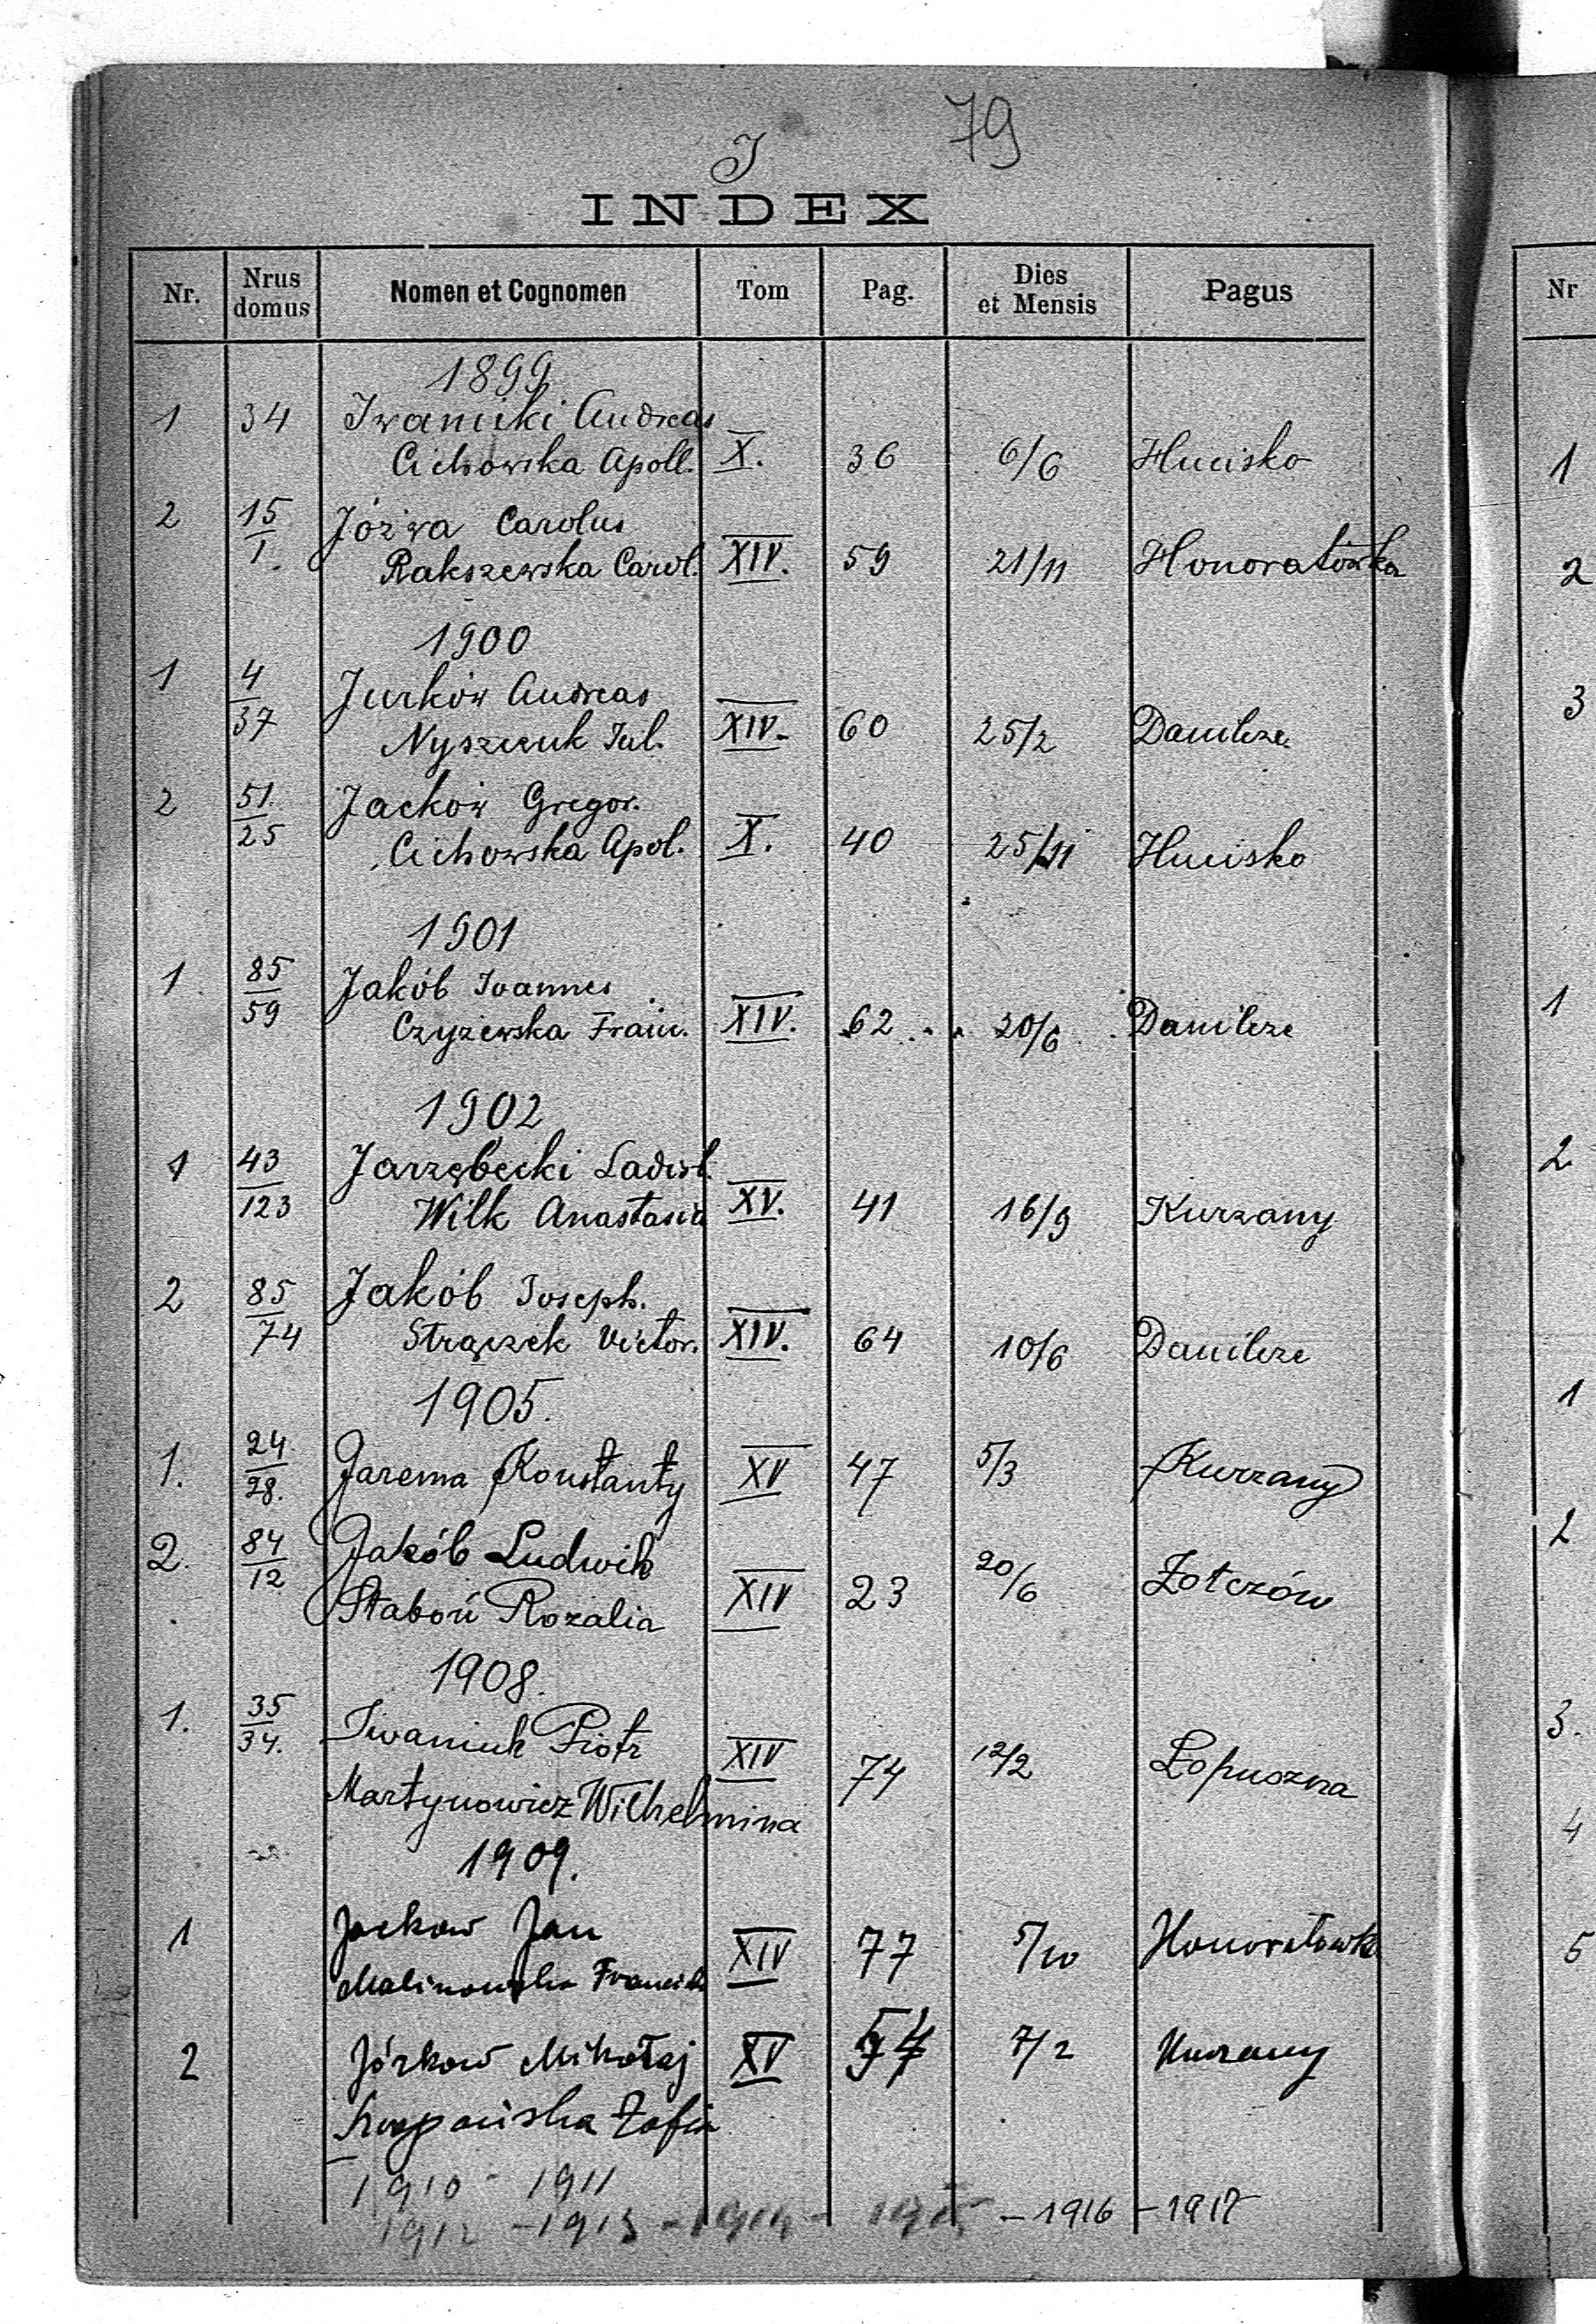 79
J
INDEX
Nr. Nrus domus Nomen et Cognomen Tom Pag. Dies et Mensis Pagus Nr
1899
1 34 Iwanicki Andreas
Cichowska Apoll. X. 36 6/6 Hucisko 1
2 15/1. Jóźwa Carolus
Rakszewska Carol. XIV. 59 21/11 Honoratówka 2
1900
1 4/37 Jurków Andreas 3
Nyszczuk Jul. XIV. 60 25/2 Danilcze
2 51/25 Jacków Gregor.
Cichowska Apol. X. 40 25/11 Hucisko
1901
1 85/59 Jakób Joannes 1
Czyżewska Fran. XIV. 62 20/6 Danilcze
1902
1 43/123 Jarzębecki Ladisl. 2
Wilk Anastasia XV. 41 16/9 Kurzany
2 85/74 Jakób Joseph.
Strączek Victor. XIV. 64 10/6 Danilcze
1905. 1
1. 24/28. Jarema Konstanty XV 47 5/3 Kurzany
2. 84/12 Jakób Ludwik 2
Staboń Rozalia XIV 23 20/6 Żołczów
1908.
1. 35/34. Iwaniuk Piotr XIV 74 12/2 Łopuszna 3.
Martynowicz Wilhelmina 4
1909.
1 Jackow Jan XIV 77 5/10 Honoratówk 5
Malinowska Francisk
2 Jórkow Mikołaj XV 54 7/2 Kurzany
Zofia
1910 - 1911
1912 - 1913 - 1914 - 1915 - 1916 - 1917